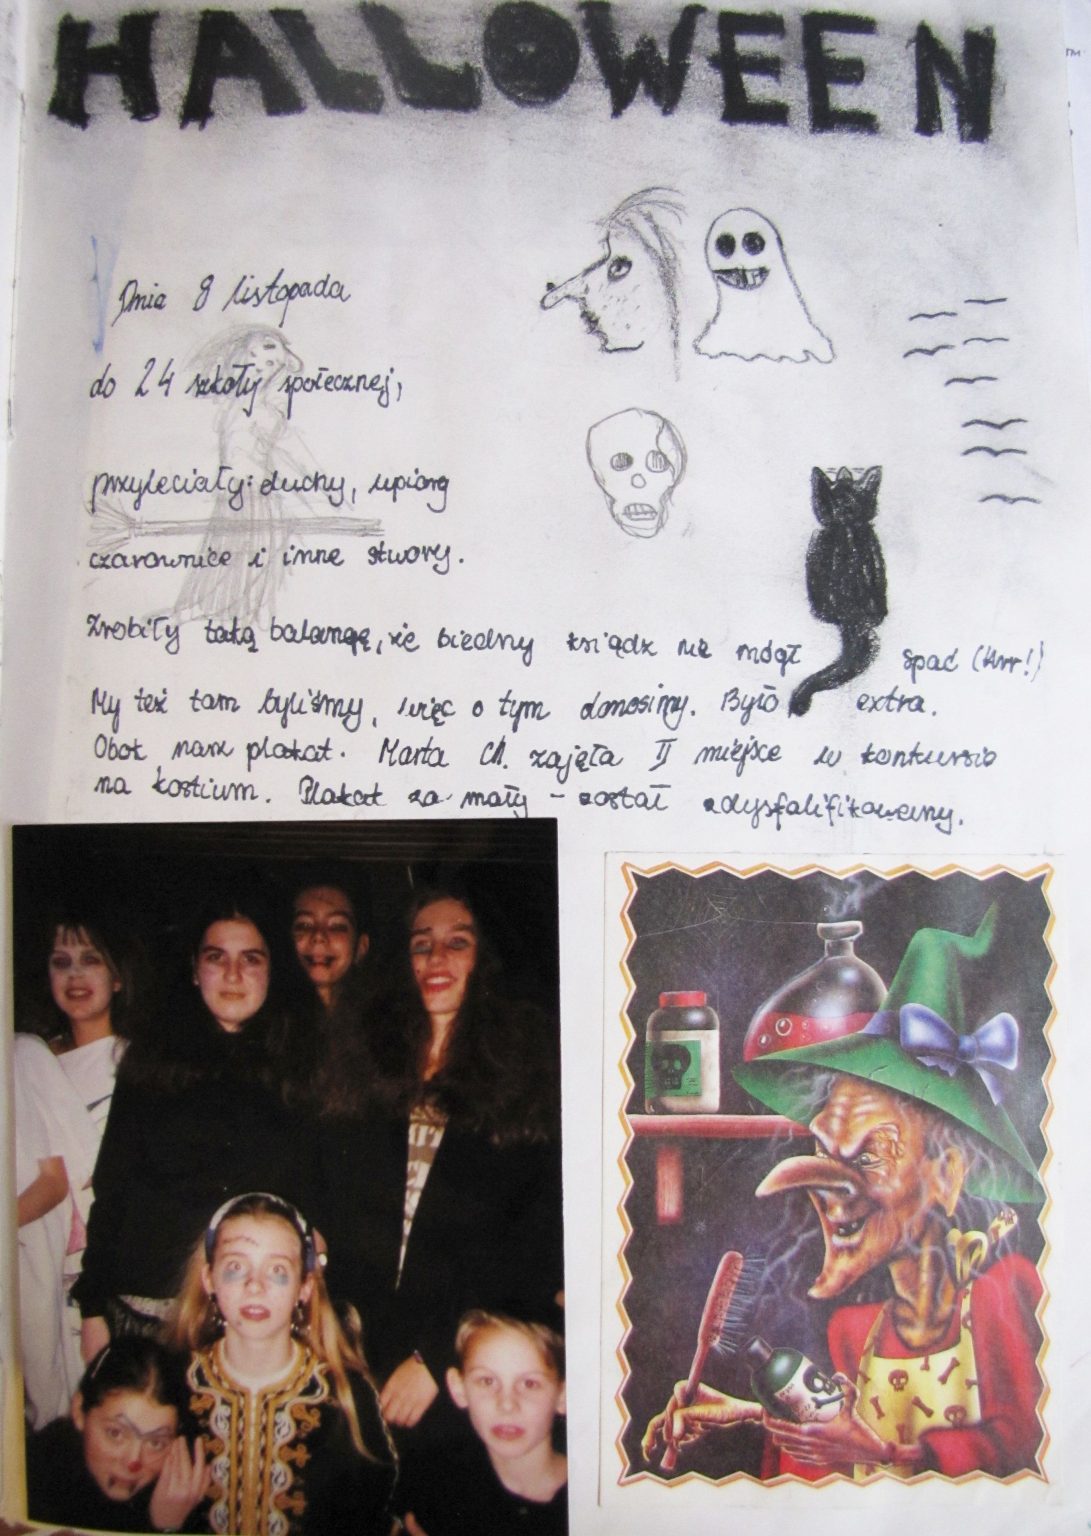 HALLOWEEN
Dnia 8 listopada
do 24 szkoły społecznej,
przyleciały: duchy, upiory
czarownice i inne stwory.
Zrobiły taką balangę, że biedny ksiądz nie mógł spać (Wrr!)
My też tam byliśmy, więc o tym donosimy. Było extra.
Obok nasz plakat. Marta Ch. zajęła II miejsce w konkursie
na kostium. Plakat za mały – został zdysfalifikowany.